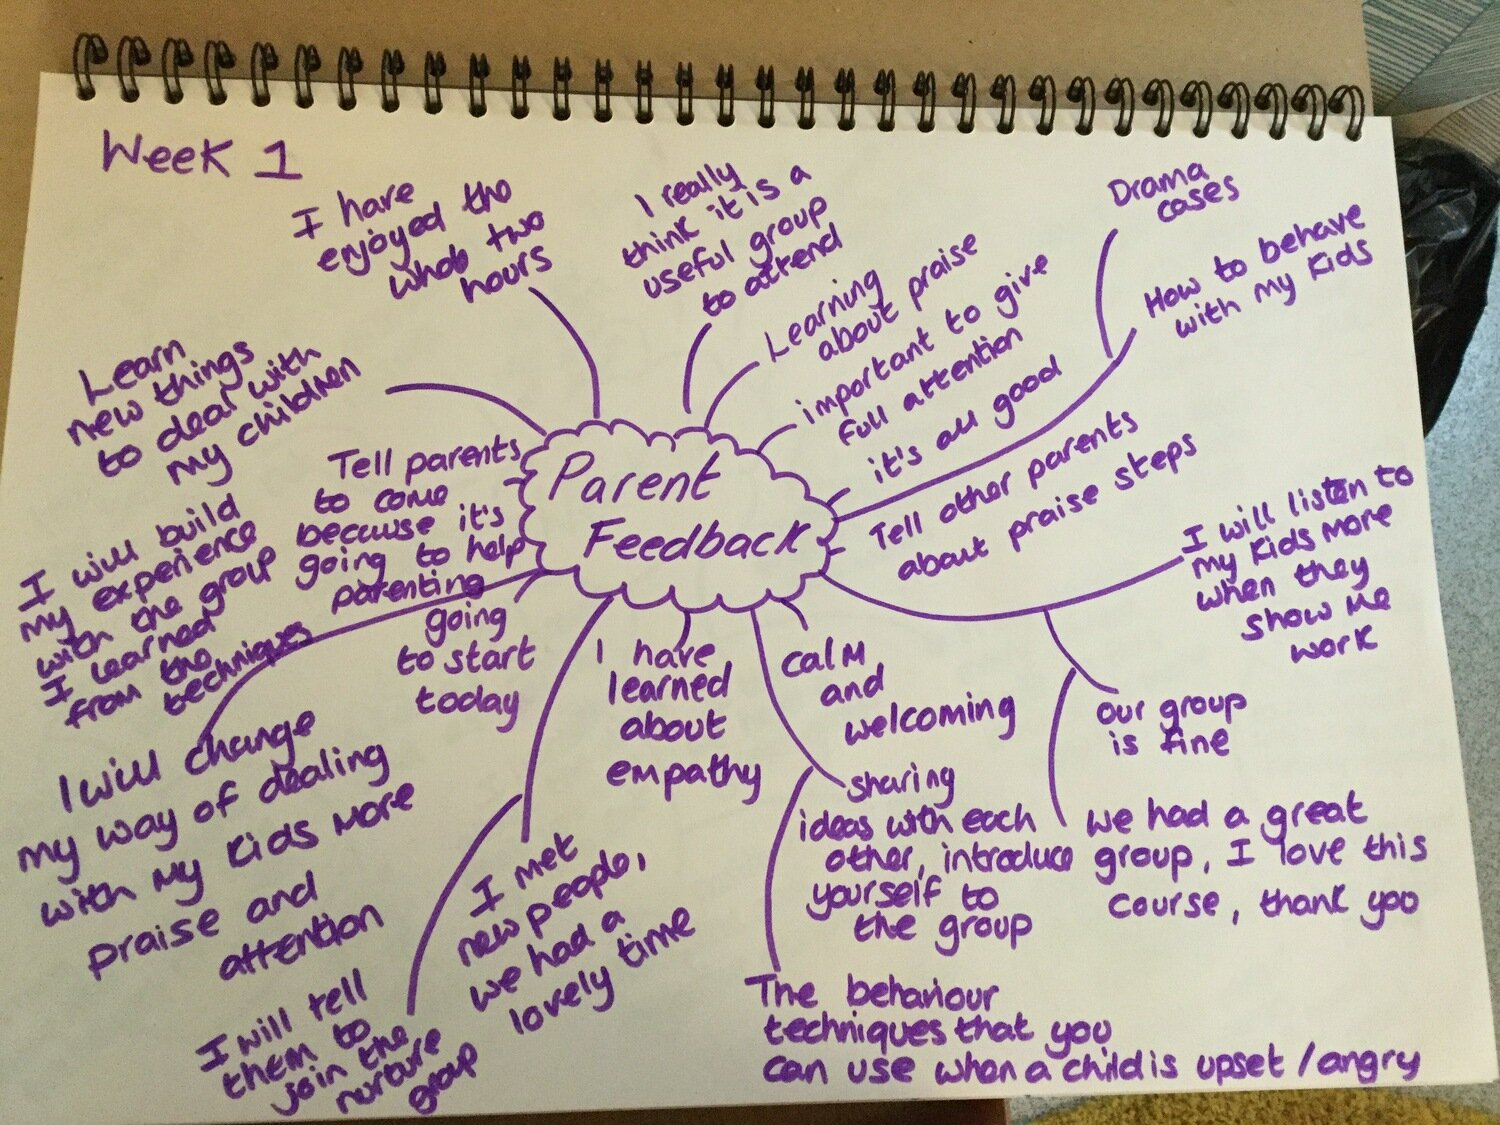 Week 1
Parent
Feedback
I have
enjoyed the
whole two
hours
I really
think it is a
useful group
to attend
Learning
about praise
important to give
full attention
it's all good
Drama
cases
How to behave
with my kids
Tell other parents
about praise steps
I will listen to
my kids more
when they
show me
work
our group
is fine
we had a great
group, I love this
course, thank you
calm
and
welcoming
sharing
ideas with each
other, introduce
yourself to
the group
The behaviour
techniques that you
can use when a child is upset / angry
I have
learned
about
empathy
I met
new people,
we had a
lovely time
I will tell
them to
join the
nurture
group
going
to start
today
I will change
my way of dealing
with my kids more
praise and
attention
I will build
my experience
with the group
I learned
from the
techniques
Tell parents
to come
because it's
going to help
parenting
Learn
new things
to deal with
my children